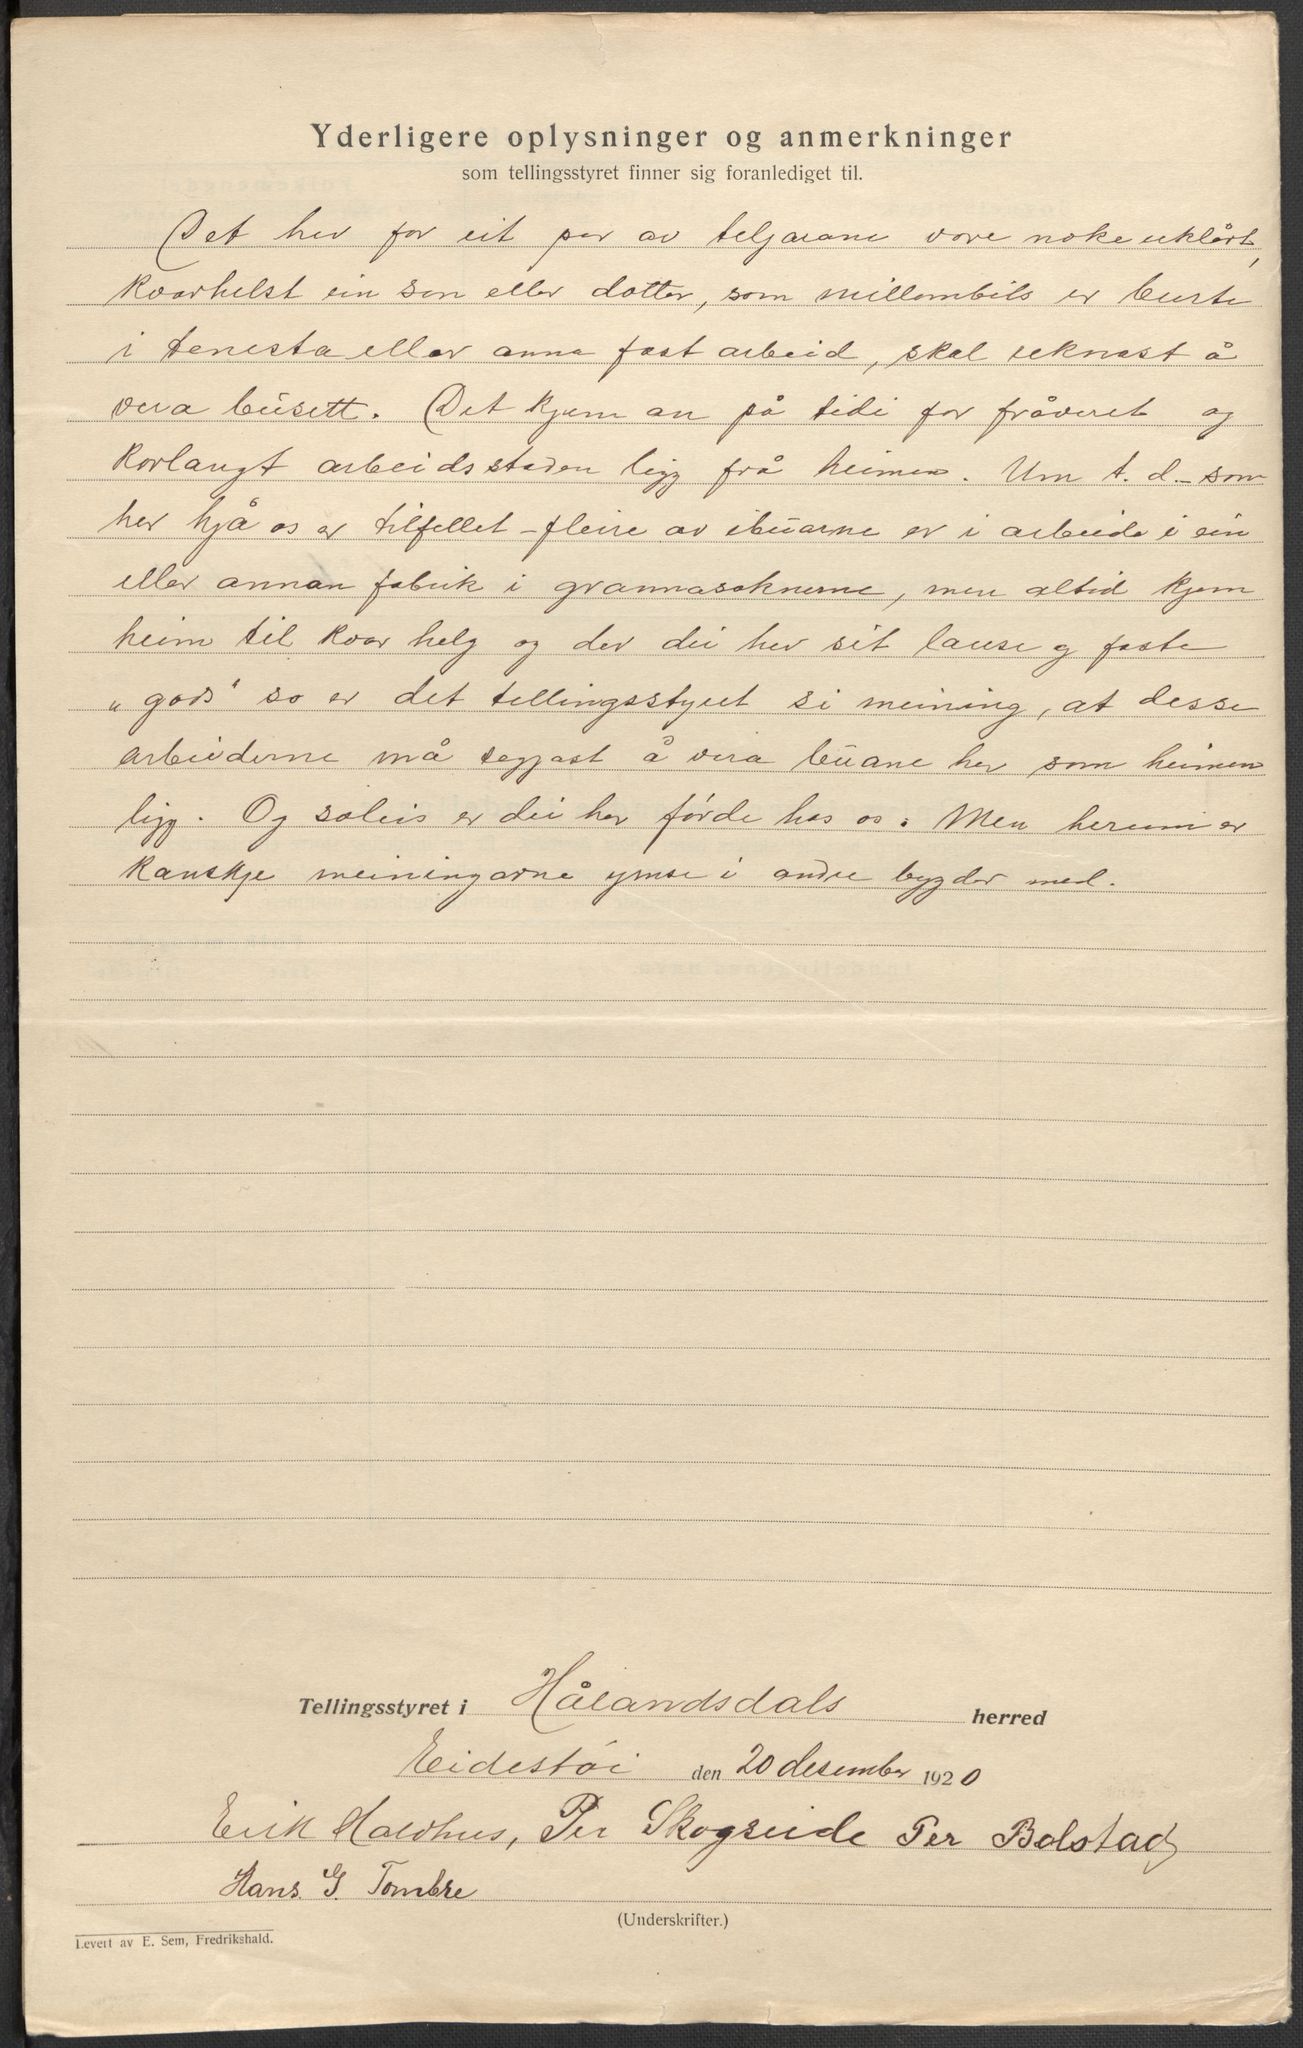 Yderligere oplysninger og anmerkninger
som tellingsstyret finner sig foranlediget til.
Det hev for eit par av teljarane vore noke uklårt,
kvarhelst ein son eller dotter, som millombils er burte
i tenesta eller anna fast arbeid, skal reknast å
vera busett. Det kjem an på tidi for fråveret og
korlangt arbeidsstaden ligg frå heimen. Um t. d. – som
her hjå os er tilfellet – fleire av ibuarne er i arbeide i ein
eller annan fabrik i grannasoknerne, men altid kjem
heim til kvar helg og der dei hev sit lause og faste
„gods" so er det tellingsstyret si meining, at desse
arbeiderne må segjast å vera buane her som heimen
ligg. Og soleis er dei her førde hos os. Men herum er
kanskje meiningarne ymse i andre bygder med.
Tellingsstyret i Hålandsdals herred
Eidestøi den 20 desember 1920
Erik Haldhus, Per Skogseide Per Bolstad
Hans. G. Tombre
(Underskrifter.)
Levert av E. Sem, Fredrikshald.